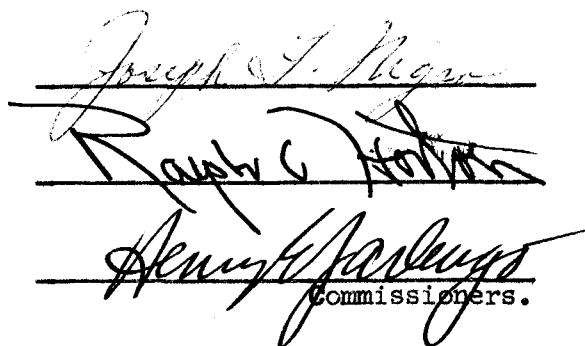 Joseph F. Nigro
Ralph C Horton
Henry E
Commissioners.